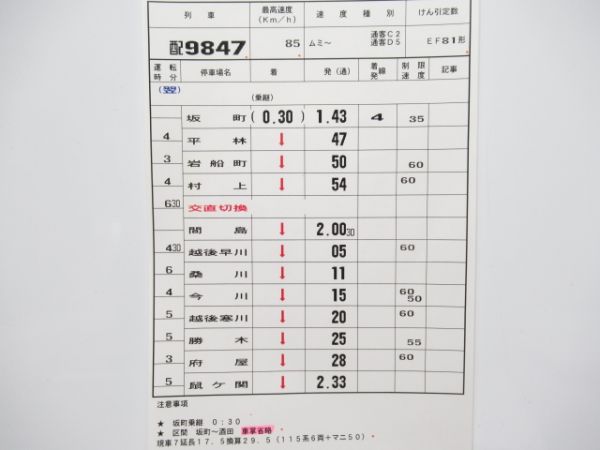 列車 最高速度(Km/h) 速度種別 けん引定数
配9847 85 ムミ〜 通客C2 通客D5 EF81形
運転時分 停車場名 着 発(通) 着発線 制限速度 記事
(翌)
(乗継)
坂町 (0.30) 1.43 4 35
4 平林 ↓ 47
3 岩船町 ↓ 50 60
4 村上 ↓ 54 60
6 30 交直切換
間島 ↓ 2.00 30
4 30 越後早川 ↓ 05 60
6 桑川 ↓ 11
4 今川 ↓ 15 60 50
5 越後寒川 ↓ 20 60
5 勝木 ↓ 25 55
3 府屋 ↓ 28 60
5 鼠ケ関 ↓ 2.33
注意事項
★ 坂町乗継 0:30
★ 区間 坂町〜酒田 車掌省略
現車7延長17.5換算29.5(115系6両+マニ50)